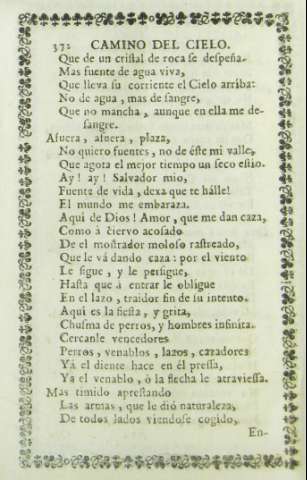 372 CAMINO DEL CIELO.
Que de un cristal de roca se despeña.
Mas fuente de agua viva,
Que lleva su corriente el Cielo arriba:
No de agua, mas de sangre,
Que no mancha, aunque en ella me de-
sangre.
Afuera, afuera, plaza,
No quiero fuentes, no de éste mi valle,
Que agota el mejor tiempo un seco estio.
Ay! ay! Salvador mio,
Fuente de vida, dexa que te hálle!
El mundo me embaraza.
Aqui de Dios! Amor, que me dan caza,
Como á ciervo acosado
De el mostrador moloso rastreado,
Que le vá dando caza: por el viento
Le sigue, y le persigue,
Hasta que á entrar le obligue
En el lazo, traidor fin de su intento.
Aqui es la fiesta, y grita,
Chusma de perros, y hombres infinita.
Cercanle vencedores
Perros, venablos, lazos, cazadores
Yá el diente hace en él pressa,
Ya el venablo, ó la flecha le atraviessa.
Mas timido aprestando
Las armas, que le dió naturaleza,
De todos lados viendose cogido,
En-